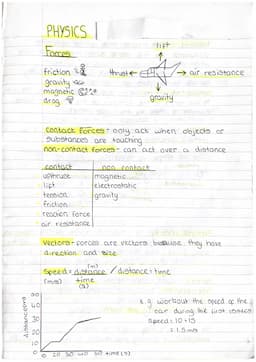 PHYSICS
Forces
lift
friction
thrust
air resistance
gravity
magnetic
drag
gravity
contact forces - only act when objects or
substances are touching
non-contact forces - can act over a distance
contact
non contact
upthrust
magnetic
lift
electrostatic
tension
gravity
friction
reaction force
air resistance
Vectors - forces are vectors because they have
direction and size
(m)
Speed = distance / distance ÷ time
(m/s)
time
(s)
50
40
30
20
10
0
distance (m)
e.g. workout the speed of the
car during the first 10 secs
speed = 10 ÷ 15
= 1.5 m/s
time (s)